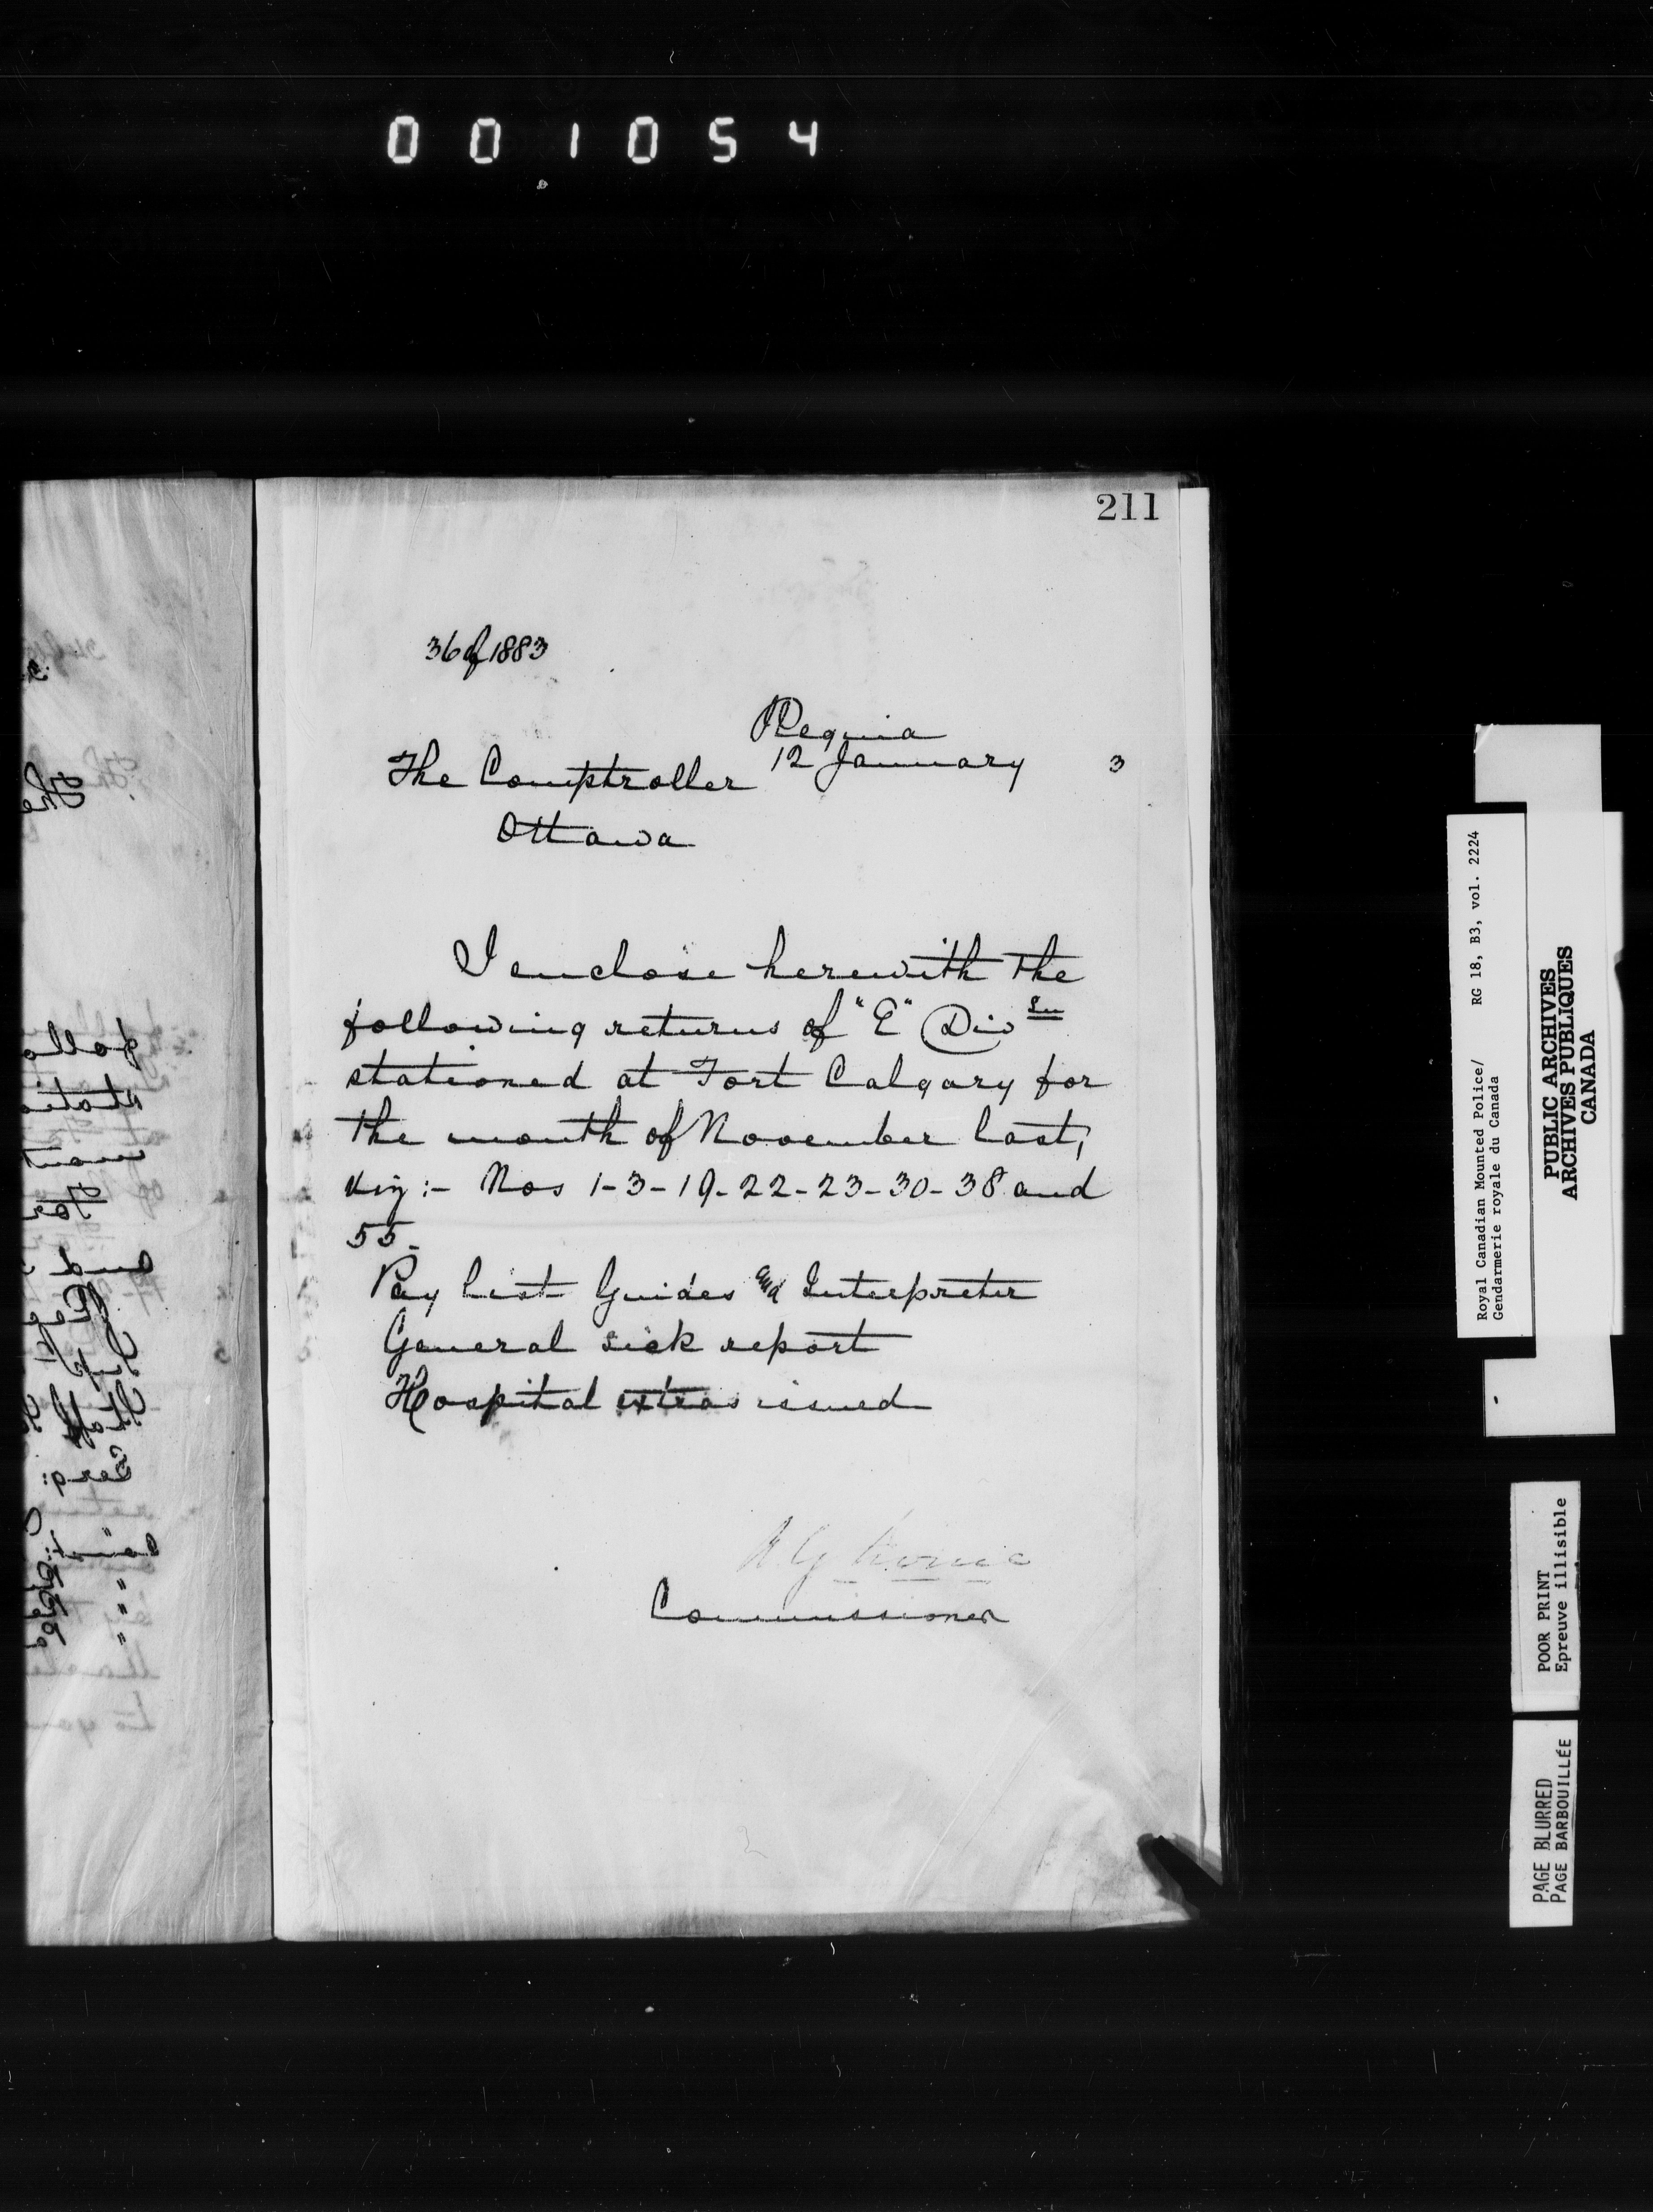 001054
211
36 of 1883
Regina
12 January 3
The Comptroller
Ottawa
I enclose herewith the
following returns of "E" Divsn
stationed at Fort Calgary for
the month of November last,
viz:- Nos 1-3-19-22-23-30-38 and
55.
Pay List Guides and Interpreter
General sick report
Hospital extras issued
Commissioner
Royal Canadian Mounted Police/ RG 18, B3, vol. 2224
Gendarmerie royale du Canada
PUBLIC ARCHIVES
ARCHIVES PUBLIQUES
CANADA
POOR PRINT
Epreuve illisible
PAGE BLURRED
PAGE BARBOUILLÉE